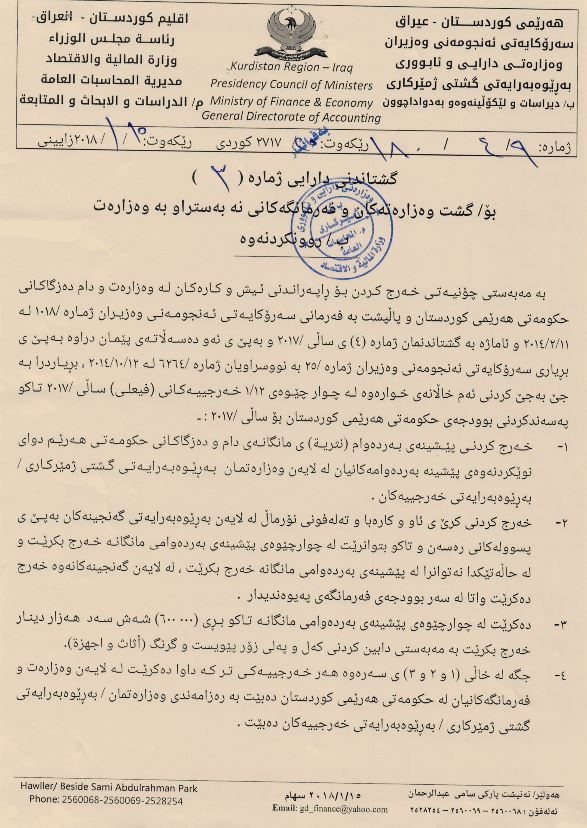 هەرێمی کوردستــان - عیراق
سەرۆکایەتی ئەنجومەنی وەزیران
وەزارەتی دارایی و ئابووری
بەڕێوەبەرایەتی گشتی ژمێرکاری
ب/ دیراسات و لێکۆڵینەوەو بەدواداچوون
Kurdistan Region – Iraq
Presidency Council of Ministers
Ministry of Finance & Economy
General Directorate of Accounting
اقلیم كوردستان - العراق
رئاسة مجلس الوزراء
وزارة المالية والاقتصاد
مديرية المحاسبات العامة
م/ الدراسات و الابحاث و المتابعة
ژمارە: ٤/٩ / ١٨٠ رێکەوت: ٢٧١٧ کوردی رێکەوت: ٢٠١٨/١/ زایینی
گشتاندنی دارایی ژمارە ( ٣ )
بۆ/ گشت وەزارەتەکان و فەرمانگەکانی نە بەستراو بە وەزارەت
ب/ روونکردنەوە
بە مەبەستی چۆنیەتی خەرج کردن بۆ ڕاپەراندنی ئیش و کارەکان لە وەزارەت و دام دەزگاکانی
حکومەتی هەرێمی کوردستان و پاڵپشت بە فەرمانی سەرۆکایەتی ئەنجومەنی وەزیران ژمارە /١٠١٨ لە
٢٠١٤/٢/١١ و ئاماژە بە گشتاندنمان ژمارە (٤) ی ساڵی /٢٠١٧ و بەپێ ی ئەو دەسەڵاتەی پێمان دراوە بەپێ ی
بڕیاری سەرۆکایەتی ئەنجومەنی وەزیران ژمارە /٢٥ بە نووسراویان ژمارە /٦٢٦٤ لە ٢٠١٤/١٠/١٢ ، بڕیاردرا بە
جێ بەجێ کردنی ئەم خاڵانەی خوارەوە لە چوار چێوەی ١/١٢ خەرجییەکانی (فیعلی) ساڵی /٢٠١٧ تاکو
پەسەندکردنی بوودجەی حکومەتی هەرێمی کوردستان بۆ ساڵی /٢٠١٧ : ـ
١- خەرج کردنی پێشینەی بەردەوام (نثریة) ی مانگانەی دام و دەزگاکانی حکومەتی هەرێم دوای
نوێکردنەوەی پێشینە بەردەوامەکانیان لە لایەن وەزارەتمان بەڕێوەبەرایەتی گشتی ژمێرکاری /
بەڕێوەبەرایەتی خەرجییەکان .
٢- خەرج کردنی کرێ ی ئاو و کارەبا و تەلەفۆنی نۆرماڵ لە لایەن بەڕێوەبەرایەتی گەنجینەکان بەپێ ی
پسوولەکانی رەسەن و تاکو بتوانرێت لە چوارچێوەی پێشینەی بەردەوامی مانگانە خەرج بکرێت و
لە حاڵەتێکدا نەتوانرا لە پێشینەی بەردەوامی مانگانە خەرج بکرێت ، لە لایەن گەنجینەکانەوە خەرج
دەکرێت واتا لە سەر بوودجەی فەرمانگەی پەیوەندیدار .
٣- دەکرێت لە چوارچێوەی پێشینەی بەردەوامی مانگانە تاکو بڕی (٦٠٠ ٠٠٠) شەش سەد هەزار دینار
خەرج بکرێت بە مەبەستی دابین کردنی کەل و پەلی زۆر پێویست و گرنگ (أثاث و اجهزة).
٤- جگە لە خاڵی (١ و ٢ و ٣) ی سەرەوە هەر خەرجییەکی تر کە داوا دەکرێت لە لایەن وەزارەت و
فەرمانگەکانیان لە حکومەتی هەرێمی کوردستان دەبێت بە رەزامەندی وەزارەتمان / بەڕێوەبەرایەتی
گشتی ژمێرکاری / بەڕێوەبەرایەتی خەرجییەکان دەبێت .
Hawller/ Beside Sami Abdulrahman Park
Phone: 2560068-2560069-2528254
٢٠١٨/١/١٥ سهام
Email: gd_finance@yahoo.com
هەولێر/ تەنیشت پارکی سامی عبدالرحمان
تەلەفۆن : ٢٥٦٠٠٦٨ - ٢٥٦٠٠٦٩ - ٢٥٢٨٢٥٤